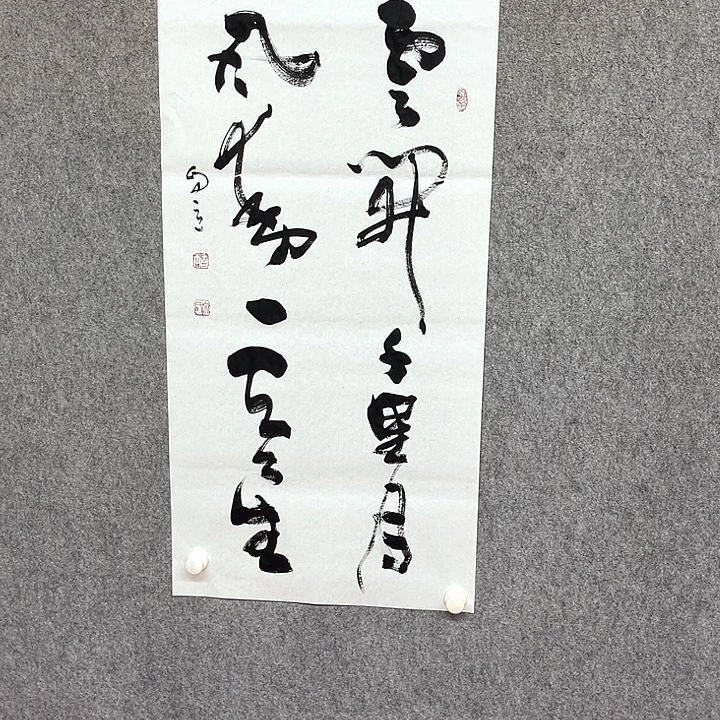 雲開千里月
風動一天星